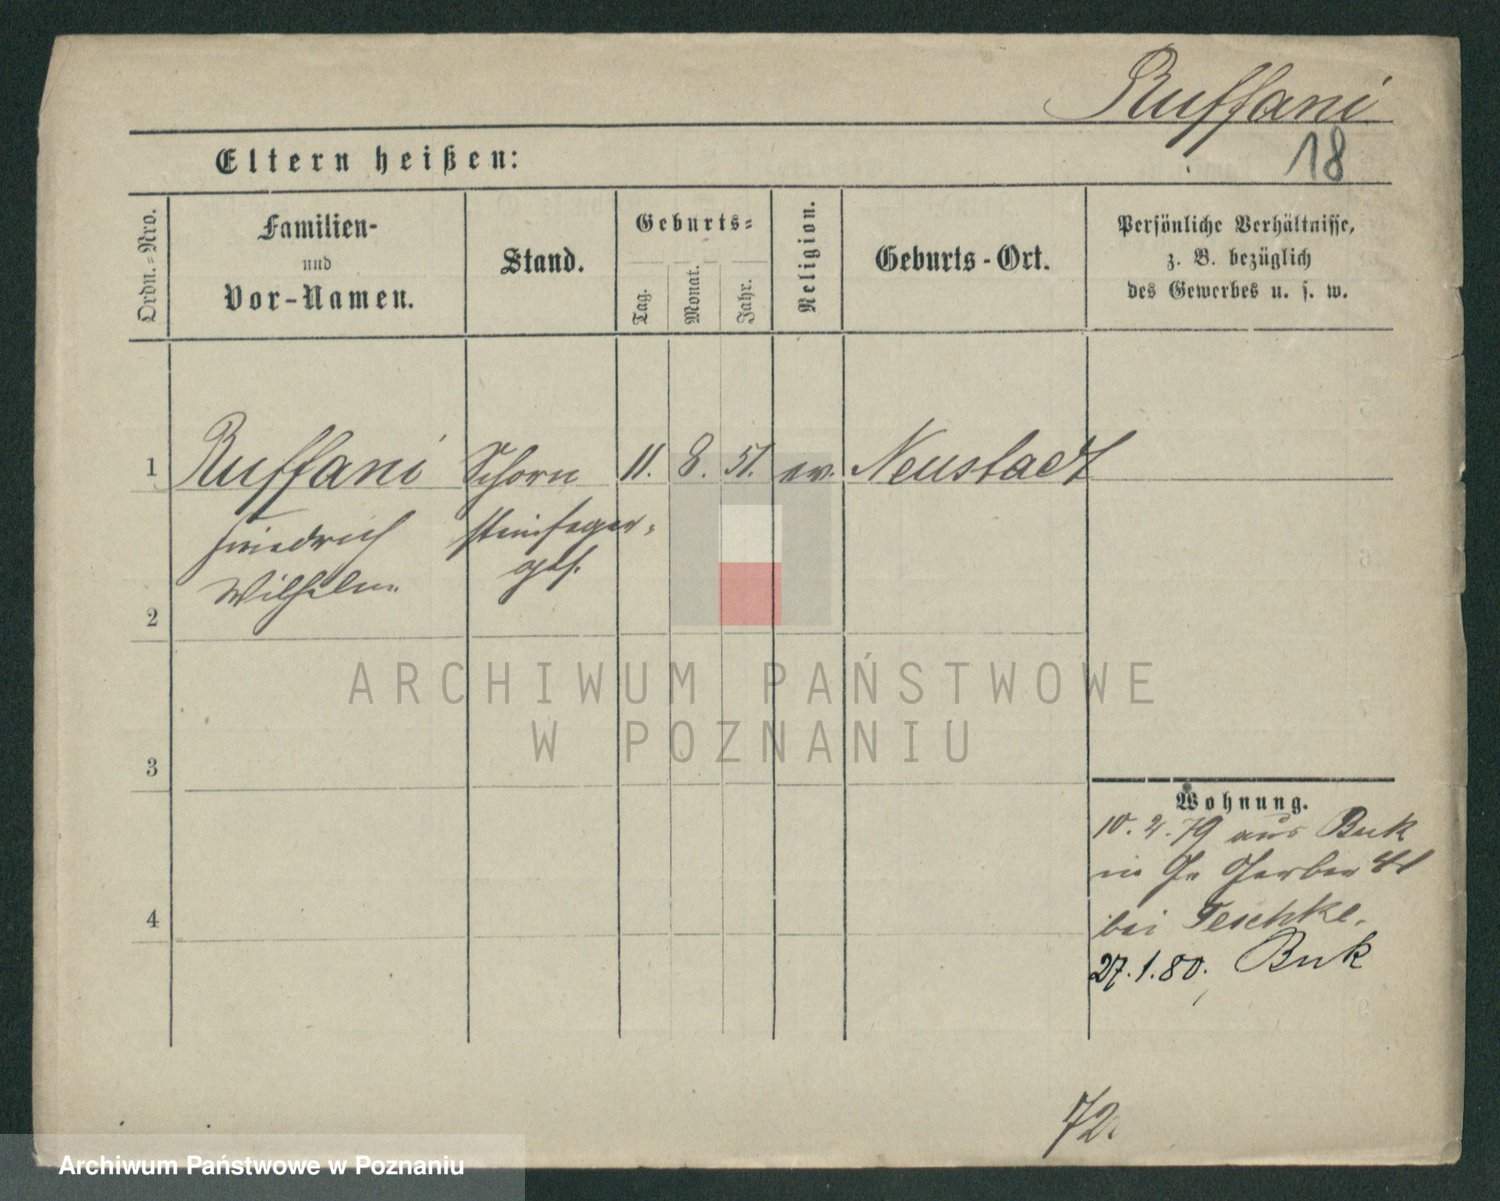 Ruffani
18
Eltern heißen:
Ordn.-Nro.
Familien-
und
Vor-Namen.
Stand.
Geburts-
Tag.
Monat.
Jahr.
Religion.
Geburts-Ort.
Persönliche Verhältnisse,
z. B. bezüglich
des Gewerbes u. s. w.
1 Ruffani Schorn 11. 8. 51. ev. Neustadt
Friedrich steinfeger-
Wilhelm
2
3
4
Wohnung.
10. 2. 79 aus Buk
in Gr Gerber
bei Teschke.
27. 1. 80. Buk
72.
ARCHIWUM PAŃSTWOWE
W POZNANIU
Archiwum Państwowe w Poznaniu